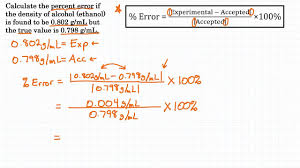 Calculate the percent error if
the density of alcohol (ethanol)
is found to be 0.802 g/mL, but
the true value is 0.798 g/mL.
* % Error = |Experimental − Accepted| / |Accepted| ×100%
0.802g/mL = Exp ←
0.798g/mL = Acc ←
% Error = |0.802g/mL − 0.798g/mL| / |0.798g/mL| × 100%
= 0.004g/mL / 0.798g/mL × 100%
=